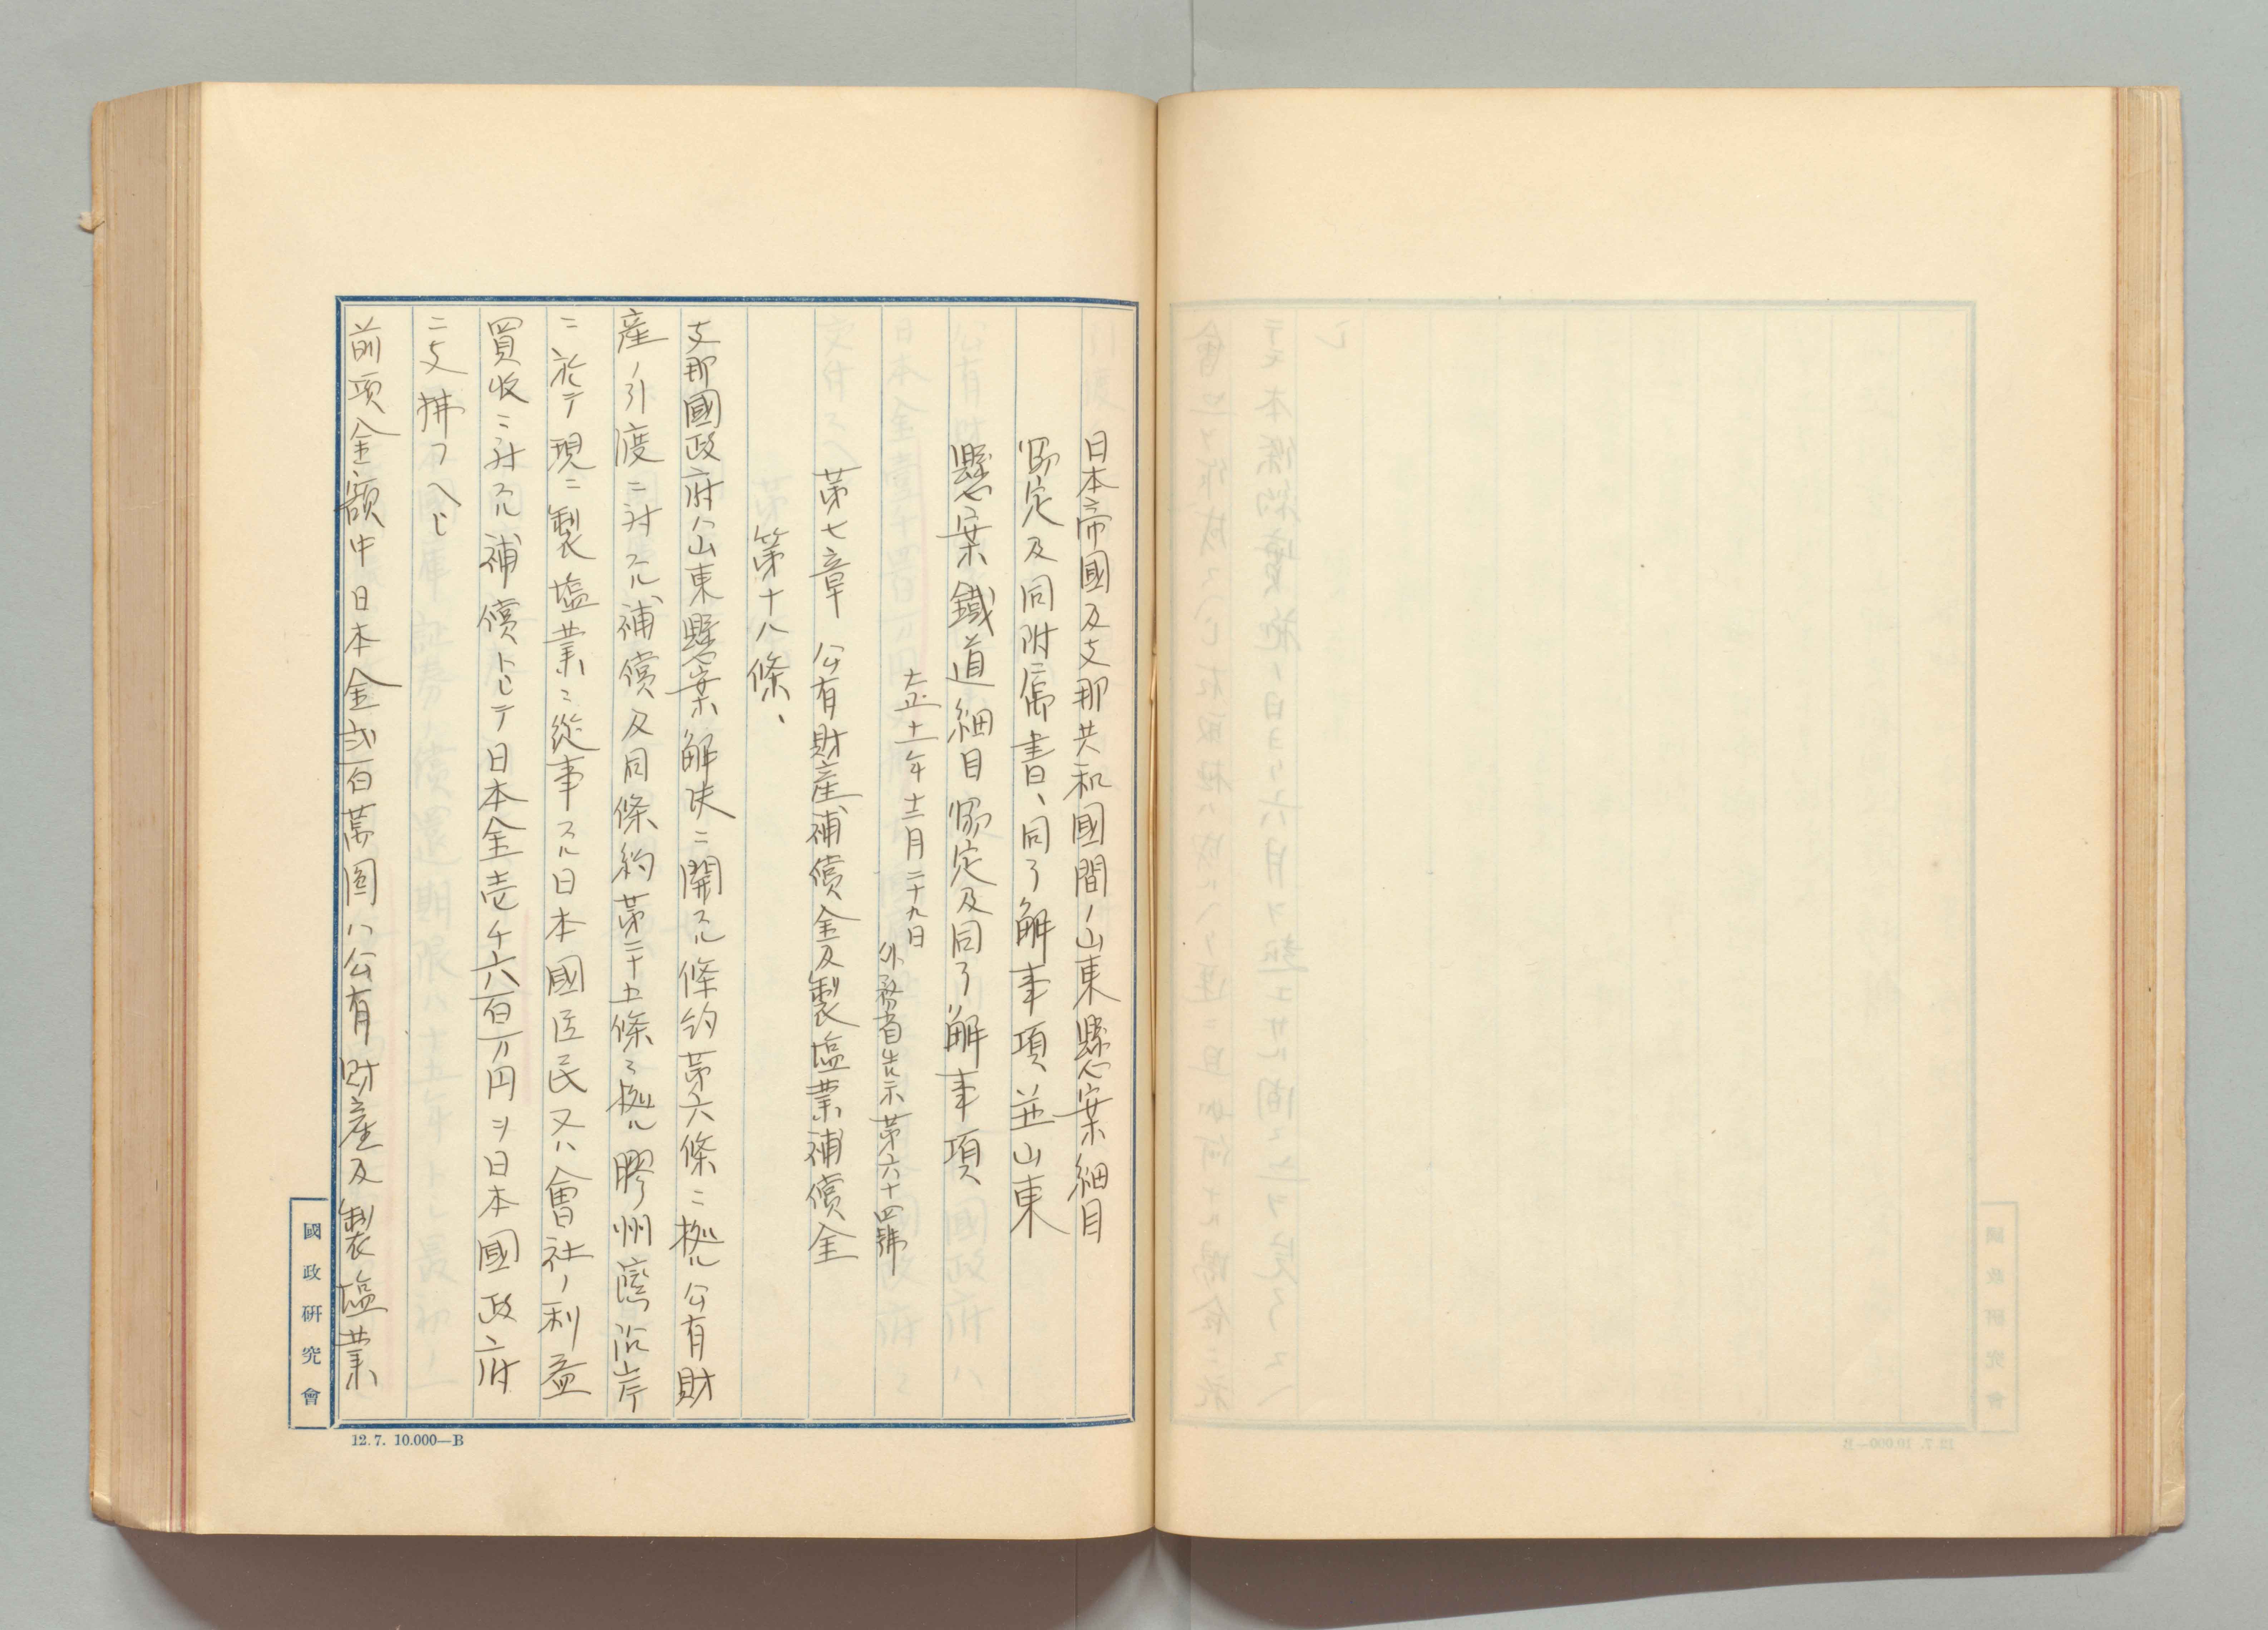 日本帝國及支那共和國間ノ山東懸案細目
協定及同附属書、同了解事項並山東
懸案鐵道細目協定及同了解事項
大正十一年十二月二十九日
外務省告示第六十四號
第七章　公有財産補償金及製塩業補償金
第十八條、
支那國政府ハ山東懸案解决ニ関スル條約第六條ニ拠ル公有財
産ノ引渡ニ対スル補償及同條約第二十五條ニ拠ル膠州灣沿岸
ニ於テ現ニ製塩業ニ從事スル日本國臣民又ハ會社ノ利益
買收ニ対スル補償トシテ日本金壱千六百万円ヲ日本國政府
ニ支拂フヘシ
前項金額中日本金弐百萬圓ハ公有財産及製塩業
國政研究會
12.7. 10.000—B